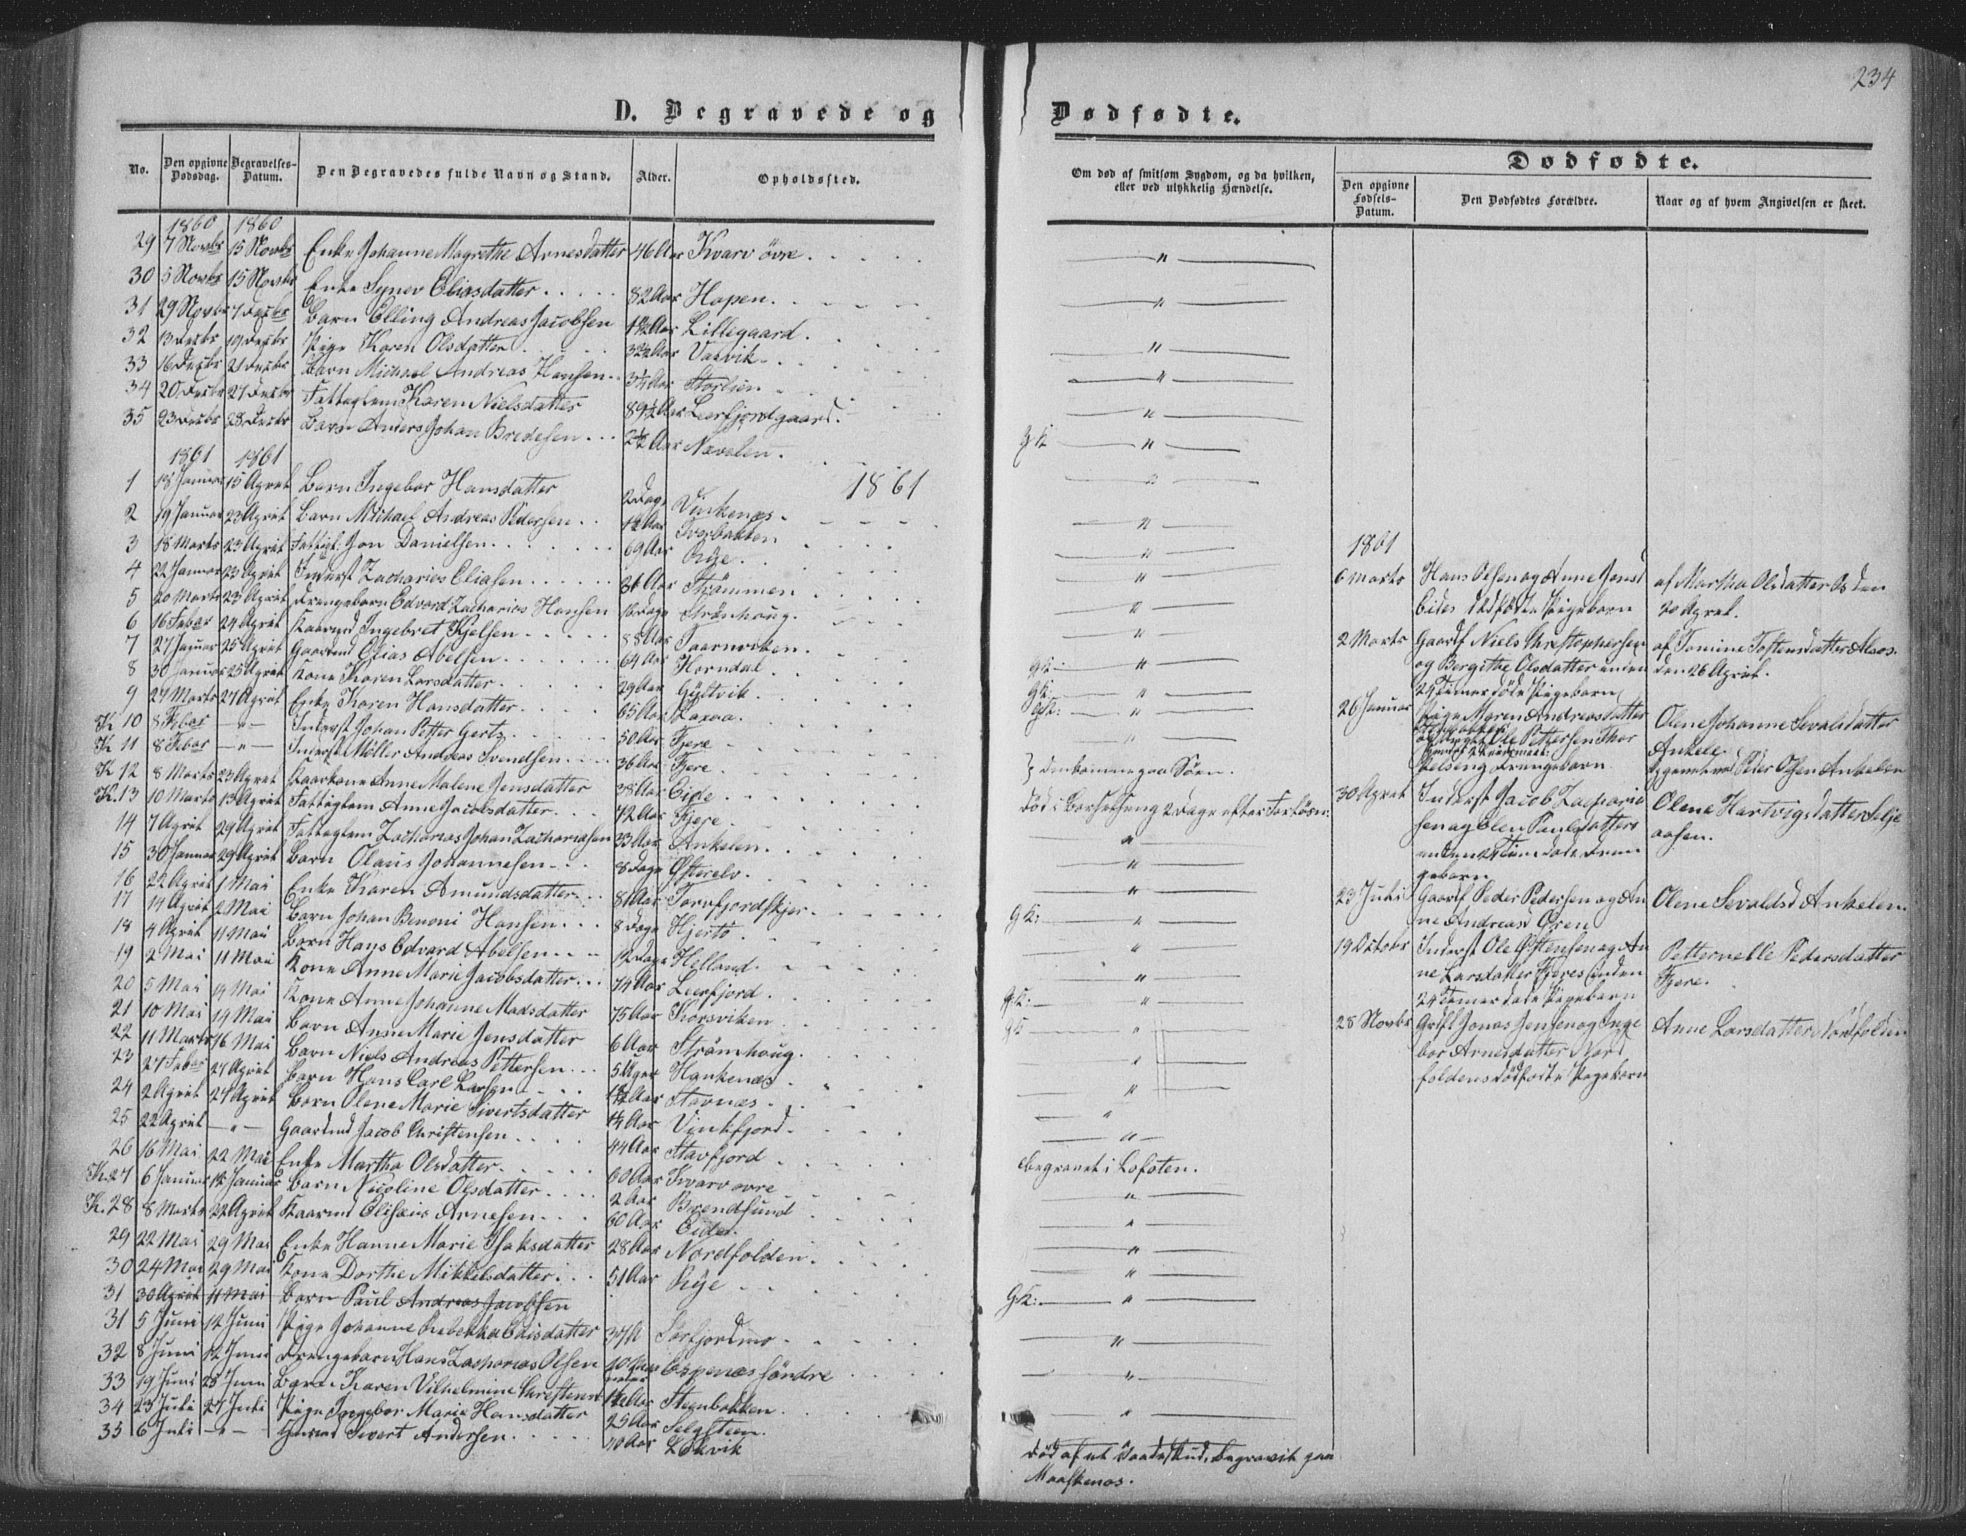 234
D. Begravede og Dødfødte.
No. Den opgivne Dødsdag. Begravelses-Datum. Den Begravedes fulde Navn og Stand. Alder. Opholdssted.
1860 1860
29 7 Novbr 15 Novbr Enke Johanne Magrethe Arnesdatter 46 Aar Kvarv øvre
30 5 Novbr 15 Novbr Enke Synev Eliasdatter 82 Aar Hopen
31 29 Novbr 7 Decbr Barn Elling Andreas Jacobsen 1½ Aar Lillegaard
32 13 Decbr 19 Decbr Pige Karen Olsdatter 32½ Aar Valvik
33 16 Decbr 21 Decbr Barn Michael Andreas Hansen 3½ Aar Storlien
34 20 Decbr 27 Decbr Fattiglem Karen Nielsdatter 89½ Aar Leerfjordgaard
35 23 Decbr 28 Decbr Barn Anders Johan Bredesen 2½ Aar Navelen
1861 1861
1861
1 18 Januar 15 April Barn Ingebor Hansdatter 2 Dage Vinkenæs
2 19 Januar 23 April Barn Michael Andreas Pedersen 1½ Aar Tverbakken
3 18 Marts 23 April Fattigl. Jon Danielsen 69 Aar
4 22 Januar 23 April Inderst Zacharias Eliasen 31 Aar Strømmen
5 20 Marts 23 April Drengebarn Edvard Zacharias Hansen Dage Strømhoug
6 16 Febar 24 April Kaarmd Ingebret Kjelsen 88 Aar Taarnviken
7 27 Januar 25 April Gaardmd Elias Abelsen 64 Aar Horndal
8 30 Januar 25 April Kone Karen Larsdatter 29 Aar Gyltvik
9 24 Marts 27 April Enke Karen Hansdatter 65 Aar
K 10 8 Febar " Inderst Johan Petter Gertz 50 Aar Fjere
K 11 8 Febar " Inderst Møller Andreas Svendsen 36 Aar Fjere
K 12 8 Marts 23 April Kaarkone Anne Malene Jensdatter 38 Aar Eide
K. 13 10 Marts 13 April Fattiglem Anne Jacobsdatter 72 Aar Fjere
14 7 April 29 April Fattiglem Zacharias Johan Zachariasen 33 Aar Ankelen
15 30 Januar 29 April Barn Olaus Johannesen 8 Dage Østerelv
16 22 April 1 Mai Enke Karen Amundsdatter 81 Aar Torrfjordskjer
17 14 April 2 Mai Barn Johan Benoni Hansen 8 Dage Hjertø
18 4 April 11 Mai Barn Hans Edvard Abelsen 12 Dage Helland
19 2 Mai 11 Mai Kone Anne Marie Jacobsdatter 74 Aar Leerfjord
20 5 Mai 19 Mai Kone Anne Johanne Madsdatter 75 Aar Korsviken
21 10 Mai 19 Mai Barn Anne Marie Jensdatter 6 Aar Strømhoug
22 11 Marts 16 Mai Barn Niels Andreas Pettersen 5 Uger Hankenæs
23 27 Febar 24 April Barn Hans Carl Larsen Aar Stavnæs
24 2 April 24 April Barn Olene Marie Sivertsdatter Aar Vinkfjord
25 22 April " Gaardmd Jacob Christensen 44 Aar Stavfjord
26 16 Mai 22 Mai Enke Martha Olsdatter 60 Aar Kvarv øvre
K. 27 6 Januar 12 Januar Barn Nicoline Olsdatter 2 Aar Brendsund
K. 28 8 Marts 22 April Kaarmd Elisæus Arnesen 60 Aar Eidet
29 22 Mai 29 Mai Enke Hanne Marie Isaksdatter 28 Aar Nordfolden
30 24 Mai 29 Mai Kone Dorthe Mikkelsdatter 51 Aar
31 30 April 11 Mai Barn Paul Andreas Jacobsen
31 5 Juni 12 Juni Pige Johanne Rebekka Edisdatter 37 A Sørfjordmo
32 8 Juni 12 Juni Drengebarn Hans Zacharias Olsen Espenæs søndre
33 19 Juni 25 Juni Barn Karen Vilhelmine Christensd Aar Stenbakken
34 23 Juli 27 Juli Pige Ingebor Marie Hansdatter 25 Aar
35 6 Juli " Sivert Andersen 70 Aar
Om død af smitsom Sygdom, og da hvilken, eller ved ulykkelig Hændelse.
omkommne paa Søen.
Død i Barselseng 2 Dage efter Forløsn:
Begravet i Lofoten.
Død af et Vaadeskud, begravet paa
Maaskenæs.
Dødfødte.
Den opgivne Fødsels-Datum. Den Dødfødtes Forældre. Naar og af hvem Angivelsen er skeet.
1861
6 Marts Hans Olsen og Anne Jensd
Eides dødfødte Pigebarn
af Martha Olsdatter Os den
20 April.
2 Marts Gaardf Niels Christophersen
og Bergithe Olsdatter inden
24 Timer døde Pigebarn
af Tomine Toftensdatter
den 26 April.
26 Januar Pige Maren Andreasdatter
Ole Pettersen
Drengebarn
Olene Johanne Sevaldsdatter
Ankele.
Peder Olsen Ankelen
30 April Inderst Jacob Zacharia
sen og Elen Paulsdatters
inden 24 Timer døde Dren
gebarn
Olene Hartvigsdatter Selje
aasen.
23 Juli Gaardf Peder Pedersen og An
ne Andreasd Øren
Olene Sevaldsd Ankelen
19 Octobr Inderst Ole Østensen og An
ne Larsdatter Fjeres inden
24 Timer døde Pigebarn
Petternelle Pedersdatter
Fjere.
28 Novbr Jonas Jensen og Inge
bor Arnesdatter Nord
foldens dødfødte Pigebarn
Anne Larsdatter Nordfolden